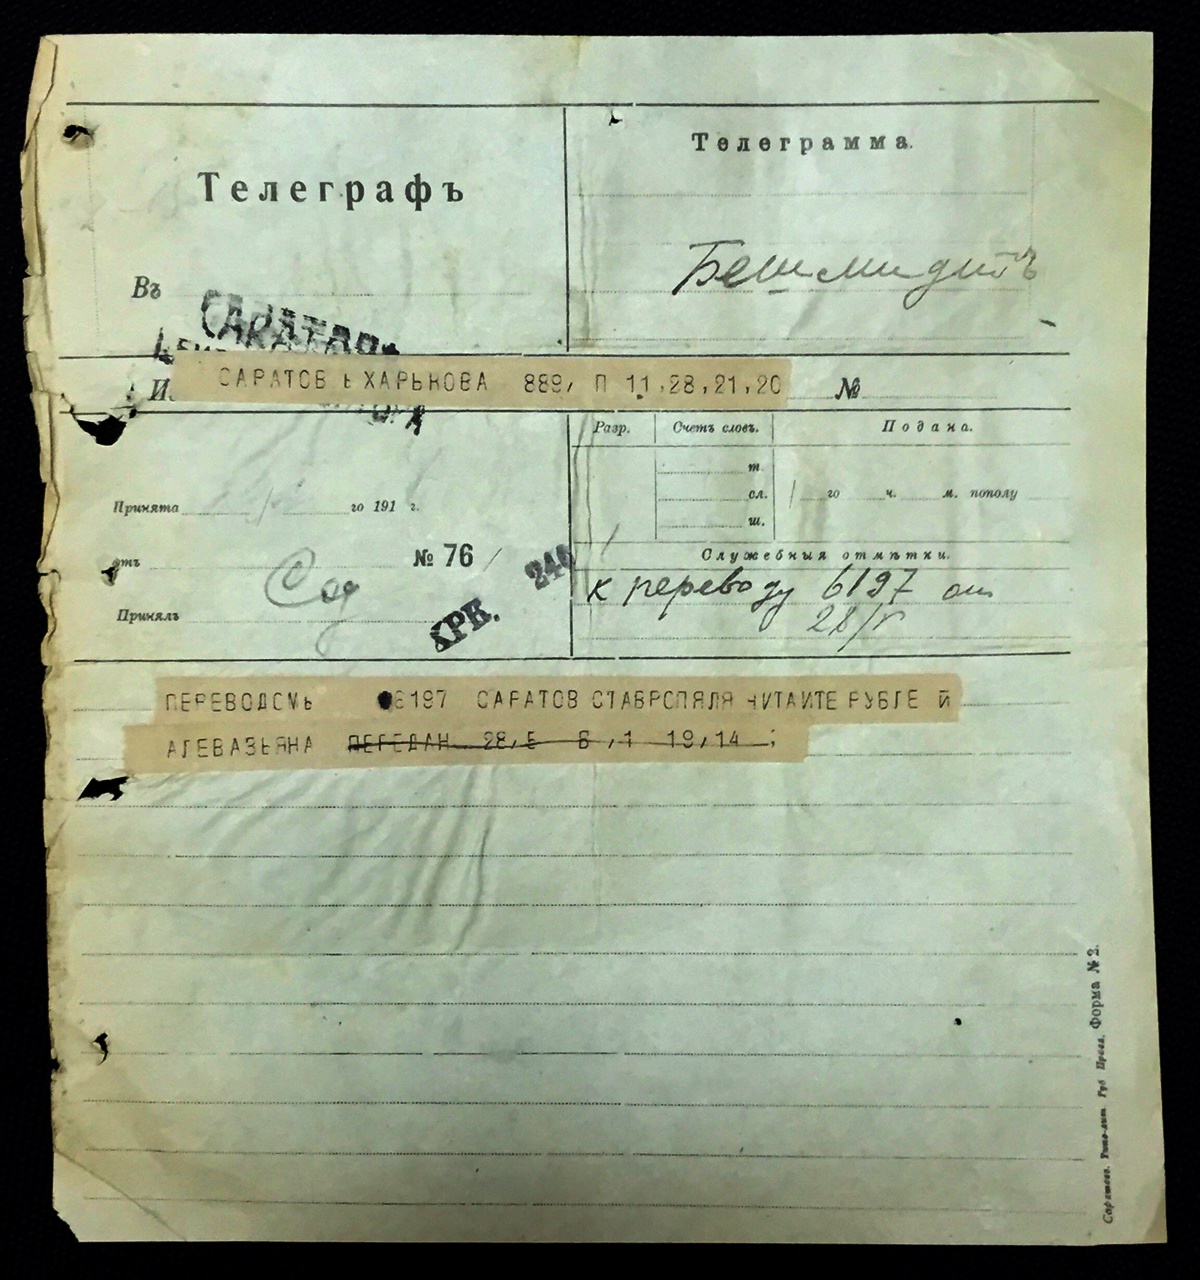 Телеграфъ
Въ
САРАТОВ
САРАТОВ Ь ХАРЬКОВА 889/ П 11,28,21,20
Телеграмма.
№
Принята го 191 г.
отъ № 76/
Принялъ
ХРК. 246
Разр. Счетъ словъ. Подана.
т.
сл. го ч. м. пополу
ш.
Служебныя отмѣтки.
к переводу 6197 от
28/V
ПЕРЕВОДОМЬ 6197 САРАТОВ СТАВРОПЯЛЯ ЧИТАИТЕ РУБЛЕ Й
АГЕВАЗЬЯНА ПЕРЕДАН 28,5 Б,1 19,14 ;
Саратовъ. Типо-лит. Губ Правл. Форма № 2.